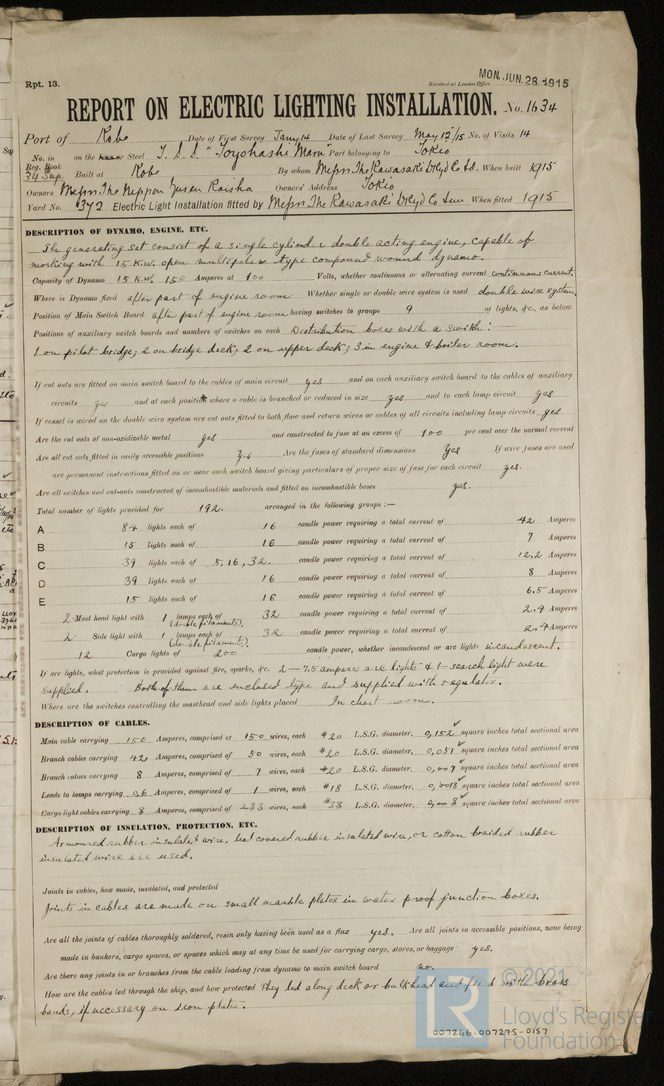 Rpt. 13.
Received at London Office MON. JUN. 28. 1915
REPORT ON ELECTRIC LIGHTING INSTALLATION. No. 1634
Port of Kobe Date of First Survey Jany 14 Date of Last Survey May 12/15 No. of Visits 14
No. in Reg. Book 34 Sup. on the Iron or Steel T. S. S. "Toyohashi Maru" Port belonging to Tokio
Built at Kobe By whom Messrs The Kawasaki Dkyd Co Ld. When built 1915
Owners Messrs The Nippon Yusen Kaisha Owners' Address Tokio
Yard No. 372 Electric Light Installation fitted by Messrs The Kawasaki Dkyd Co When fitted 1915
DESCRIPTION OF DYNAMO, ENGINE, ETC.
The generating set consist of a single cylinder double acting engine, capable of
working with 15 K.W. open multipolar type compound wound dynamo.
Capacity of Dynamo 15 K.W. 150 Amperes at 100 Volts, whether continuous or alternating current continuous current.
Where is Dynamo fixed after part of engine room Whether single or double wire system is used double wire system.
Position of Main Switch Board after part of engine room having switches to groups 9 of lights, &c., as below
Positions of auxiliary switch boards and numbers of switches on each Distribution boxes with a switch :
1 on pilot bridge; 2 on bridge deck; 2 on upper deck; 3 in engine & boiler room.
If cut outs are fitted on main switch board to the cables of main circuit yes and on each auxiliary switch board to the cables of auxiliary
circuits yes and at each position where a cable is branched or reduced in size yes and to each lamp circuit yes
If vessel is wired on the double wire system are cut outs fitted to both flow and return wires or cables of all circuits including lamp circuits yes
Are the cut outs of non-oxidizable metal yes and constructed to fuse at an excess of 100 per cent over the normal current
Are all cut outs fitted in easily accessible positions yes Are the fuses of standard dimensions yes If wire fuses are used
are permanent instructions fitted on or near each switch board giving particulars of proper size of fuse for each circuit yes.
Are all switches and cut-outs constructed of incombustible materials and fitted on incombustible bases yes.
Total number of lights provided for 192. arranged in the following groups :—
A 84 lights each of 16 candle power requiring a total current of 42 Amperes
B 15 lights each of 16 candle power requiring a total current of 7 Amperes
C 39 lights each of 5, 16, 32. candle power requiring a total current of 12.2 Amperes
D 39 lights each of 16 candle power requiring a total current of 8 Amperes
E 15 lights each of 16 candle power requiring a total current of 6.5 Amperes
2 Mast head light with 1 lamps each of (double filaments). 32 candle power requiring a total current of 2.4 Amperes
2 Side light with 1 lamps each of (double filaments). 32 candle power requiring a total current of 2.4 Amperes
12 Cargo lights of 200 candle power, whether incandescent or arc lights incandescent.
If arc lights, what protection is provided against fire, sparks, &c. 2 – 7.5 ampere arc lights & 1 – search light were
supplied. Both of them are enclosed type and supplied with regulator.
Where are the switches controlling the masthead and side lights placed In chart room.
DESCRIPTION OF CABLES.
Main cable carrying 150 Amperes, comprised of 150 wires, each #20 L.S.G. diameter, 0,152 square inches total sectional area
Branch cables carrying 42 Amperes, comprised of 50 wires, each #20 L.S.G. diameter, 0,051 square inches total sectional area
Branch cables carrying 8 Amperes, comprised of 7 wires, each #20 L.S.G. diameter, 0,007 square inches total sectional area
Leads to lamps carrying 0,6 Amperes, comprised of 1 wires, each #18 L.S.G. diameter, 0,0018 square inches total sectional area
Cargo light cables carrying 8 Amperes, comprised of 233 wires, each #38 L.S.G. diameter, 0,008 square inches total sectional area
DESCRIPTION OF INSULATION, PROTECTION, ETC.
Armoured rubber insulated wire, lead covered rubber insulated wire, or cotton braided rubber
insulated wire are used.
Joints in cables, how made, insulated, and protected
Joints in cables are made on small marble plates in water proof junction boxes.
Are all the joints of cables thoroughly soldered, resin only having been used as a flux yes. Are all joints in accessible positions, none being
made in bunkers, cargo spaces, or spaces which may at any time be used for carrying cargo, stores, or baggage yes.
Are there any joints in or branches from the cable leading from dynamo to main switch board no.
How are the cables led through the ship, and how protected They led along deck or bulkhead and fixed with brass
bands, if necessary on iron plates.
LR © 2021
Lloyd's Register
Foundation
007266-007275-0157